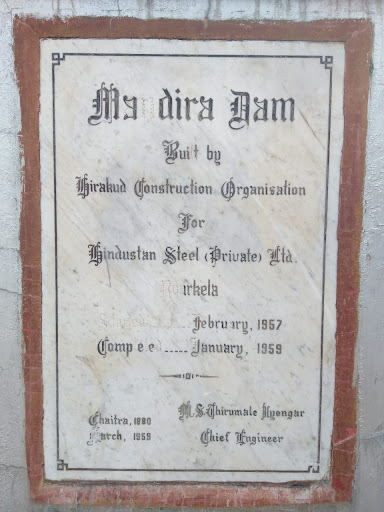 Mandira Dam
Built by
Hirakud Construction Organisation
For
Hindustan Steel (Private) Ltd.
Rourkela
Started ..... February, 1957
Completed ..... January, 1959
Chaitra, 1880
March, 1959
M. S. Thirumale Iyengar
Chief Engineer